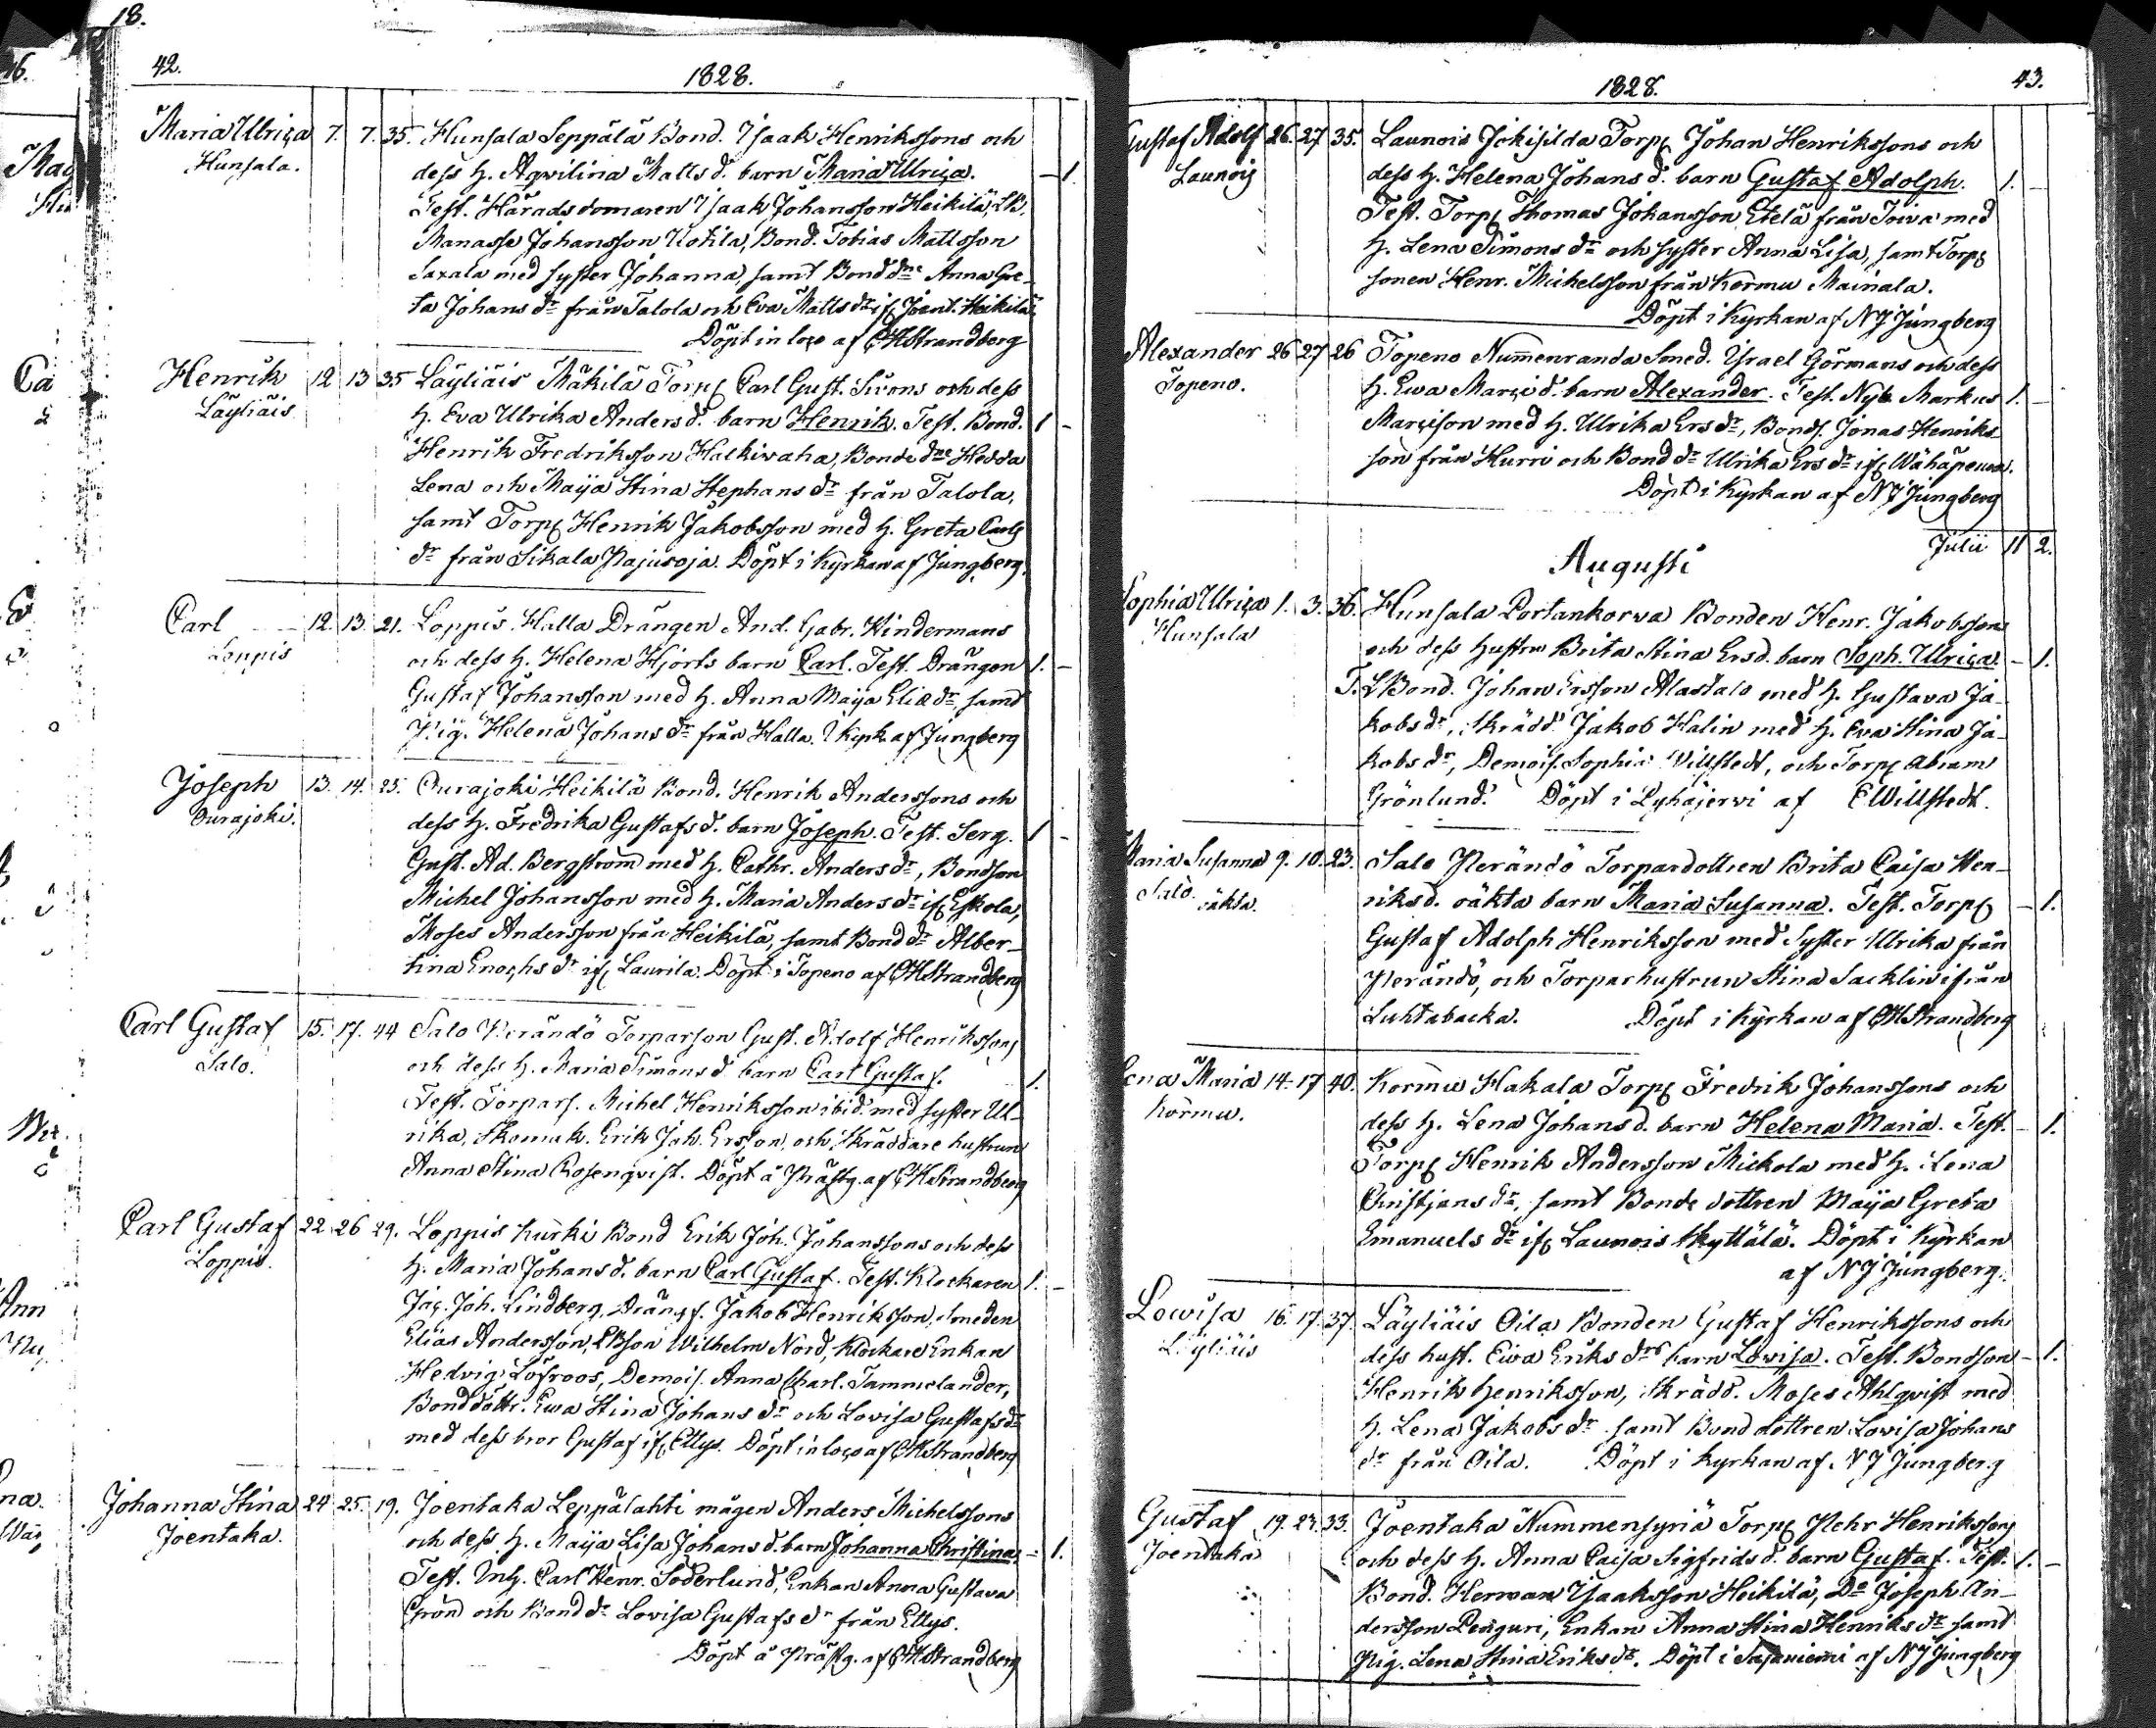 18.
42.
1828.
Maria Ulrica 7. 7. 35. Hunsala Seppälä Bond. Isaak Henrikssons och
Hunsala. dess h. Aqvilina Mattsd. barn Maria Ulrica. – 1.
Test. Häradsdomaren Isaak Johansson Heikilä, LB.
Manasse Johansson Uotila, Bond. Tobias Mattsson
Saxala med syster Johanna, samt Bonddne Anna Gre-
ta Johansdr från Talola och Eva Mattsdr if. Joent. Heikilä
Döpt in loco af CHStrandberg
Henrik 12 13 35 Läyliäis Mäkilä Torp. Carl Gust. Sirons och dess
Läyliäis h. Eva Ulrika Andersd. barn Henrik. Test. Bond. 1 –
Henrik Fredriksson Halkivaha, Bondedne Hedda
Lena och Maija Stina Stephansdr från Talola,
samt Torp. Henrik Jakobsson med h. Greta Carls
dr från Sikala Pajusoja. Döpt i Kyrkan af Jungberg.
Carl 12. 13. 21. Loppis Halla Drängen And. Gabr. Windermans
Loppis och dess h. Helena Hjorts barn Carl. Test. Drängen 1. –
Gustaf Johansson med h. Anna Maija Eliædr, samt
Pig. Helena Johansdr från Halla. I Kyrk. af Jungberg
Joseph 13. 14. 25. Ourajoki Heikilä Bond. Henrik Anderssons och
Ourajoki. dess h. Fredrika Gustafsd. barn Joseph. Test. Serg. 1 –
Gust. Ad. Bergström med h. Cathr. Andersdr, Bondson
Michel Johansson med h. Maria Andersdr if. Eskola,
Moses Andersson från Heikilä, samt Bonddr Alber-
tina Enochsdr if. Laurila. Döpt i Topeno af CHStrandberg
Carl Gustaf 15. 17. 44 Salo Perändö Torparson Gust. Adolf Henrikssons
Salo. och dess h. Maria Simonsd barn Carl Gustaf. 1.
Test. Torpars. Michel Henriksson ibid. med syster Ul-
rika, Skomak. Erik Joh. Ersson, och Skräddare hustrun
Anna Stina Rosenqvist. Döpt å Prästg. af CHStrandberg
Carl Gustaf 22 26 29. Loppis Kurki Bond Erik Joh. Johanssons och dess
Loppis. h. Maria Johansd. barn Carl Gustaf. Test. Klockaren 1. –
Jac. Joh. Lindberg, Drängs. Jakob Henriksson, Smeden
Elias Andersson, LBson Wilhelm Nord, Klockare Enkan
Hedvig Löfroos, Demois. Anna Charl. Tammelander,
Bonddottr. Ewa Stina Johansdr och Lovisa Gustafsdr
med dess bror Gustaf if. Ettys. Döpt in loco af CHStrandberg
Johanna Stina 24 25. 19. Joentaka Leppälahti mågen Anders Michelssons
Joentaka. och dess h. Maija Lisa Johansd. barn Johanna Christina – 1.
Test. Carl Henr. Söderlund, Enkan Anna Gustava
Grön och Bonddr Lovisa Gustafsdr från Ettys.
Döpt å Prästg. af CHStrandberg
1828.
43.
Gustaf Adolf 26. 27 35. Launois Jokisilda Torp. Johan Henrikssons och
Launois dess h. Helena Johansd. barn Gustaf Adolph. 1. –
Test. Torp. Thomas Johansson Etelä från Toiva med
h. Lena Simonsdr och syster Anna Lisa, samt Torp.
sonen Henr. Michelsson från Kormu Mainala.
Döpt i Kyrkan af NJJungberg
Alexander 26 27 26 Topeno Nummenranda Smed. Israel Görmans och dess
Topeno. h. Ewa Marcid. barn Alexander. Test. Nyb. Markus 1. –
Marcison med h. Ulrika Ersdr, Bonds. Jonas Henriks-
son från Hurri och Bonddr Ulrika Ersdr if. Wähäpeura.
Döpt i Kyrkan af NJJungberg
Julii 11 2.
Augusti
Sophia Ulrica 1. 3. 36. Hunsala Portankorva Bonden Henr. Jakobssons
Hunsala och dess hustru Brita Stina Ersd. barn Soph. Ulrica. – 1.
T. LBond. Johan Ersson Alastalo med h. Gustava Ja-
kobsdr, Skrädd. Jakob Halin med h. Eva Stina Ja-
kobsdr, Demois. Sophia Willstedt, och Torp. Abram
Grönlund. Döpt i Lyhäjerwi af E Willstedt.
Maria Susanna 9. 10. 23. Salo Perändö Torpardottren Brita Caisa Hen-
Salo. oäkta. riksd. oäkta barn Maria Susanna. Test. Torp. – 1.
Gustaf Adolph Henriksson med Syster Ulrika från
Perändö, och Torparhustrun Stina Sacklin ifrån
Luhtabacka. Döpt i Kyrkan af CHStrandberg
Lena Maria 14. 17 40. Kormu Hakala Torp. Fredrik Johanssons och
Kormu. dess h. Lena Johansd. barn Helena Maria. Test. – 1.
Torp. Henrik Andersson Mickola med h. Lena
Christjansdr, samt Bonde dottren Maija Greta
Emanuelsdr if. Launois Skyttälä. Döpt i Kyrkan
af NJJungberg.
Lowisa 16. 17. 37. Läyliäis Oila Bonden Gustaf Henrikssons och
Läyliäis dess hust. Ewa Eriksdrs barn Lovisa. Test. Bondson – 1.
Henrik Henriksson, Skrädd. Moses Ahlqvist med
h. Lena Jakobsdr samt Bonddottren Lovisa Johans
dr från Oila. Döpt i Kyrkan af NJJungberg
Gustaf 19. 23. 33. Joentaka Nummensyriä Torp. Pehr Henrikssons
Joentaka och dess h. Anna Caisa Sigfridsd. barn Gustaf. Test. 1. –
Bond. Herman Isaaksson Heikilä, Do Joseph An-
dersson Penguri, Enkan Anna Stina Henriksdr samt
Pig. Lena Stina Eriksdr. Döpt i Sajaniemi af NJJungberg